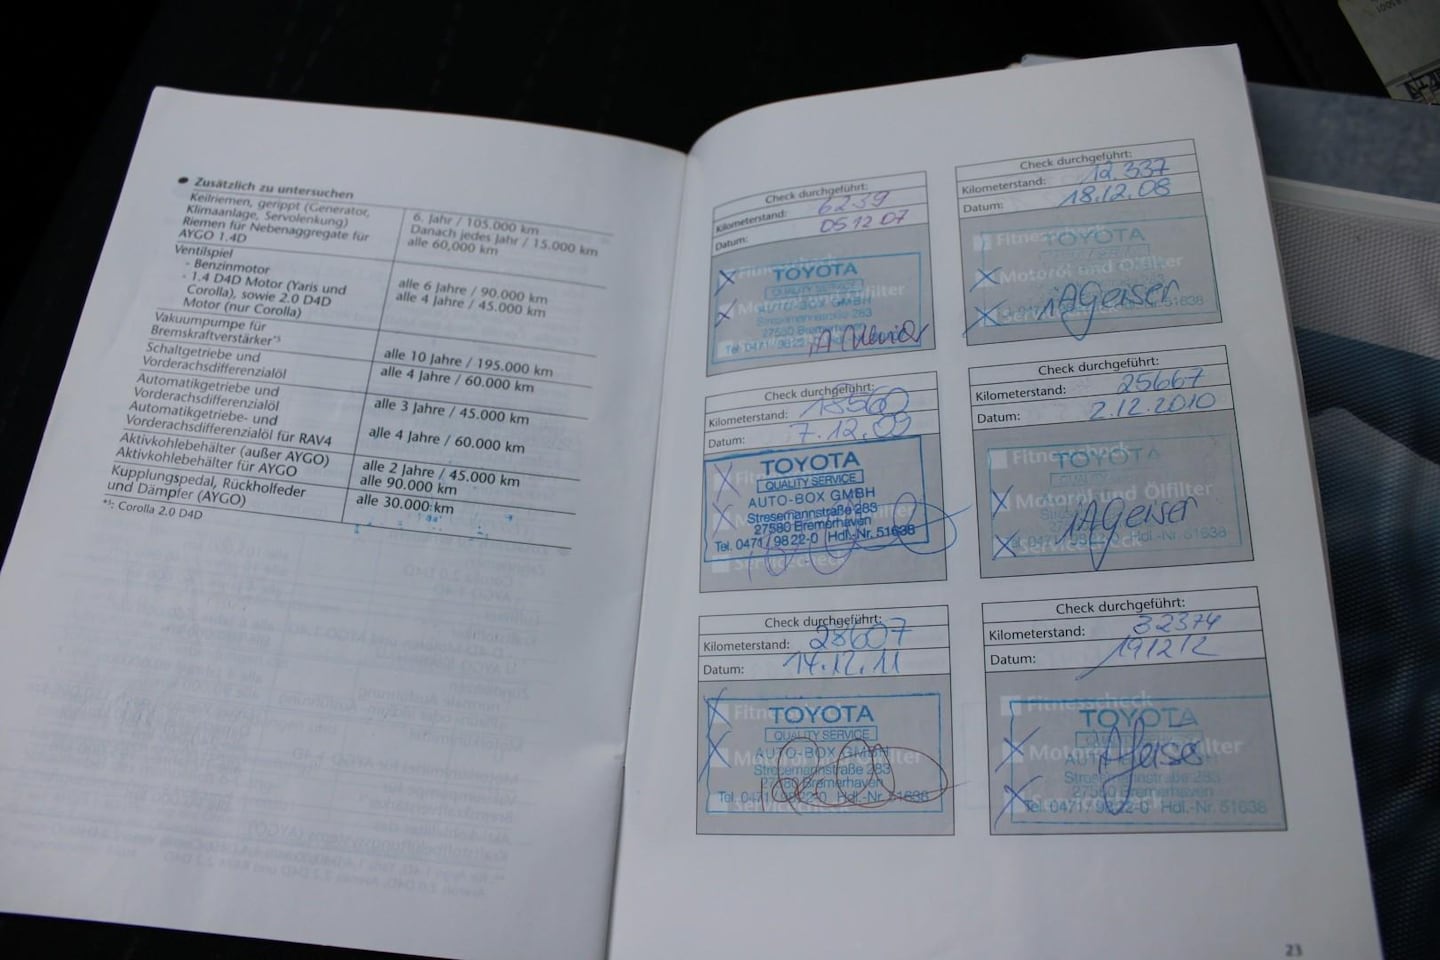 ● Zusätzlich zu untersuchen
Keilriemen, gerippt (Generator,
Klimaanlage, Servolenkung)
Riemen für Nebenaggregate für
AYGO 1.4D
6. Jahr / 105.000 km
Danach jedes Jahr / 15.000 km
alle 60,000 km
Ventilspiel
- Benzinmotor
- 1.4 D4D Motor (Yaris und
Corolla), sowie 2.0 D4D
Motor (nur Corolla)
alle 6 Jahre / 90.000 km
alle 4 Jahre / 45.000 km
Vakuumpumpe für
Bremskraftverstärker*⁵
alle 10 Jahre / 195.000 km
Schaltgetriebe und
Vorderachsdifferenzialöl
alle 4 Jahre / 60.000 km
Automatikgetriebe und
Vorderachsdifferenzialöl
alle 3 Jahre / 45.000 km
Automatikgetriebe- und
Vorderachsdifferenzialöl für RAV4
alle 4 Jahre / 60.000 km
Aktivkohlebehälter (außer AYGO)
Aktivkohlebehälter für AYGO
alle 2 Jahre / 45.000 km
alle 90.000 km
Kupplungspedal, Rückholfeder
und Dämpfer (AYGO)
alle 30.000 km
: Corolla 2.0 D4D
Check durchgeführt:
Kilometerstand: 6239
Datum: 05.12.07
Fitnesscheck
Motoröl und Ölfilter
TOYOTA
QUALITY SERVICE
AUTO-BOX GMBH
Stresemannstraße 283
27580 Bremerhaven
Tel. 0471/9822-0
Check durchgeführt:
Kilometerstand: 12.337
Datum: 18.12.08
Fitnesscheck
Motoröl und Ölfilter
Servicecheck
TOYOTA
iAGeiser
51638
Check durchgeführt:
Kilometerstand: 18560
Datum: 7.12.09
TOYOTA
QUALITY SERVICE
AUTO-BOX GMBH
Stresemannstraße 283
27580 Bremerhaven
Tel. 0471/9822-0 Hdl.-Nr. 51638
Servicecheck
Check durchgeführt:
Kilometerstand: 25667
Datum: 2.12.2010
Fitnesscheck
Motoröl und Ölfilter
Servicecheck
TOYOTA
iAGeiser
Tel. 0471/9822-0 Hdl.-Nr. 51638
Check durchgeführt:
Kilometerstand: 28607
Datum: 14.12.11
Fitnesscheck
Motoröl und Ölfilter
Servicecheck
TOYOTA
QUALITY SERVICE
AUTO-BOX GMBH
Stresemannstraße 283
27580 Bremerhaven
Tel. 0471/9822-0 Hdl.-Nr. 51638
Check durchgeführt:
Kilometerstand: 32374
Datum: 191212
Fitnesscheck
Motoröl und Ölfilter
TOYOTA
QUALITY SERVICE
Stresemannstraße 283
27580 Bremerhaven
Tel. 0471/9822-0 Hdl.-Nr. 51638
23